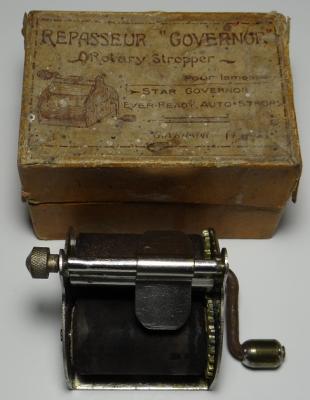 REPASSEUR "GOVERNOR"
Rotary Stropper
Pour lames
STAR GOVERNOR
EVER-READY AUTO-STROP